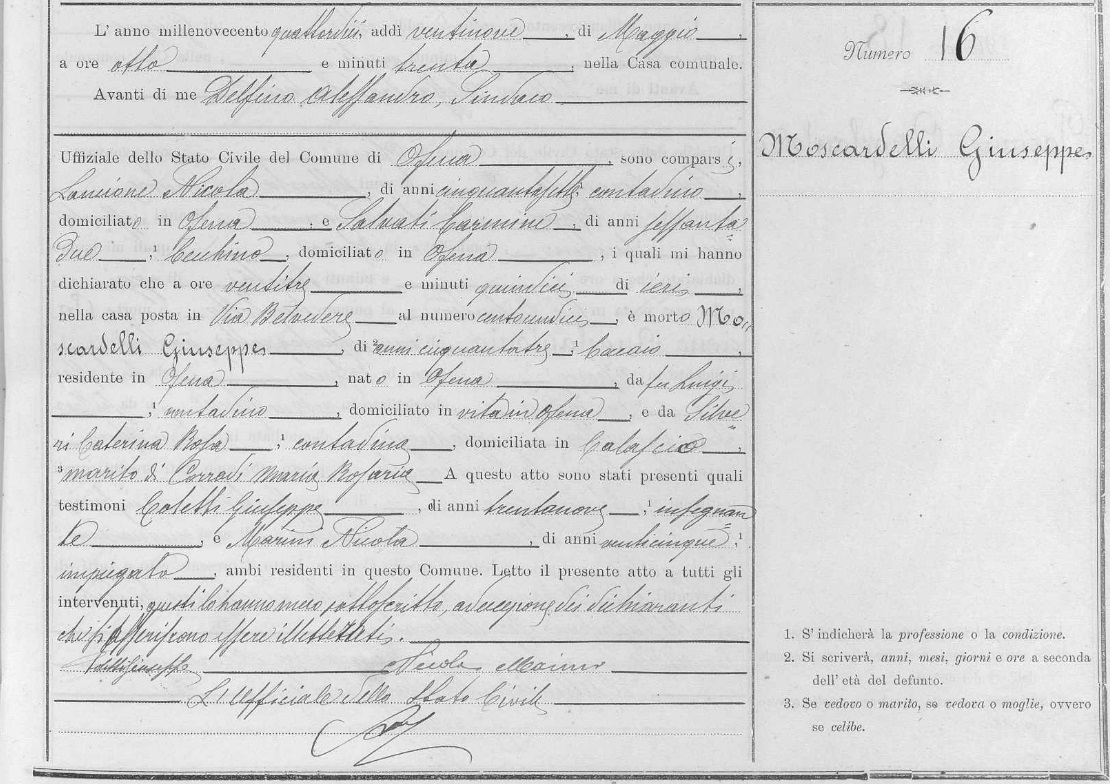 L' anno millenovecento quattordici, addì ventinove, di Maggio,
a ore otto e minuti trenta, nella Casa comunale.
Avanti di me Delfino Alessandro, Sindaco
Uffiziale dello Stato Civile del Comune di Ofena, sono compars i,
Lancione Nicola, di anni cinquantasette contadino
domiciliato in Ofena, e Salvati Carmine, di anni sessanta=
due, ¹ Becchino, domiciliato in Ofena, i quali mi hanno
dichiarato che a ore ventitre e minuti quindici di ieri,
nella casa posta in Via Belvedere al numero centoundici, è morto Mo,,
scardelli Giuseppe, di ² anni cinquantatre ¹
residente in Ofena, nato in Ofena, da fu Luigi,
, ¹ contadino, domiciliato in vita in Ofena, e da Silve
ri Caterina Rosa ¹ contadina, domiciliata in Calascio,
³ marito di Corradi Maria Rosaria A questo atto sono stati presenti quali
testimoni Coletti Giuseppe, di anni trentanove, ¹ insegnan=
te, e Marini Nicola, di anni venticinque, ¹
impiegato, ambi residenti in questo Comune. Letto il presente atto a tutti gli
intervenuti, questi lo hanno meco sottoscritto, ad eccezione dei dichiaranti
che asseriscono essere illetterati.
Nicola Marini
L'ufficiale dello Stato Civile
Numero 16
Moscardelli Giuseppe
1. S' indicherà la professione o la condizione.
2. Si scriverà, anni, mesi, giorni e ore a seconda
dell' età del defunto.
3. Se vedovo o marito, se vedova o moglie, ovvero
se celibe.